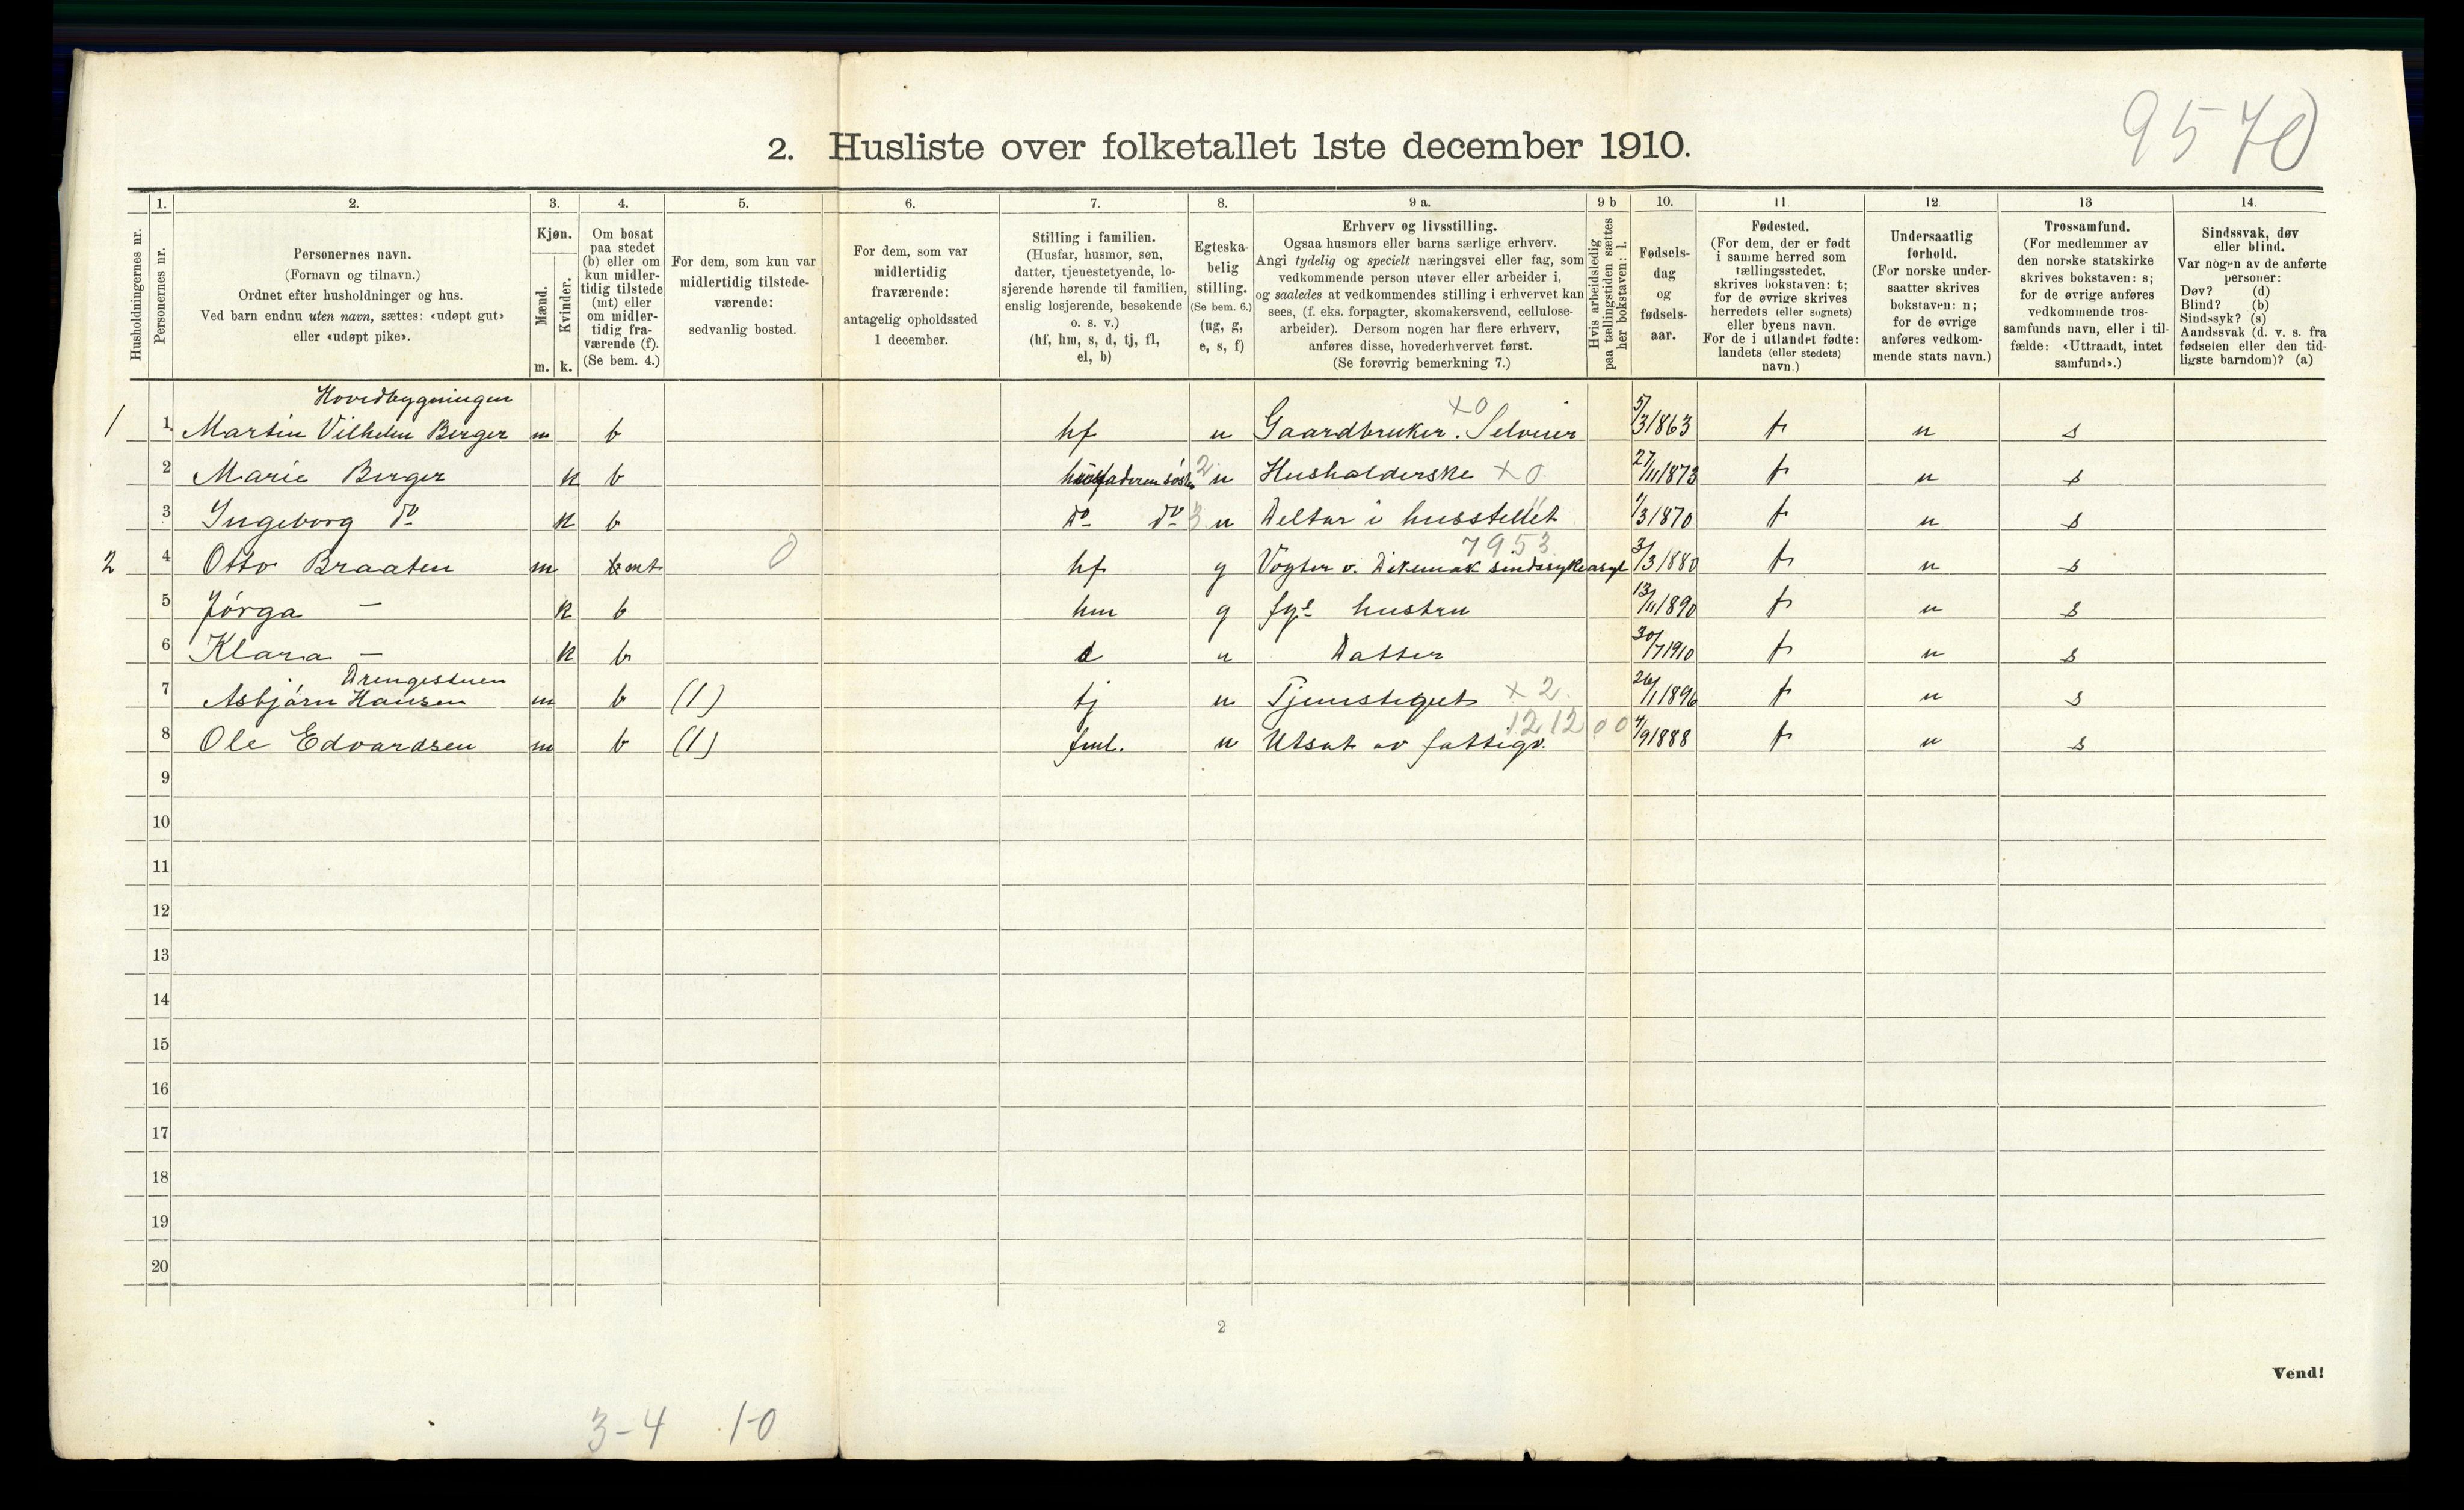 9570
2. Husliste over folketallet 1ste december 1910.
Husholdningernes nr.
1.
Personernes nr.
2.
Personernes navn.
(Fornavn og tilnavn.)
Ordnet efter husholdninger og hus.
Ved barn endnu uten navn, sættes: «udøpt gut»
eller «udøpt pike».
3.
Kjøn.
Mænd.
Kvinder.
m. k.
4.
Om bosat
paa stedet
(b) eller om
kun midler-
tidig tilstede
(mt) eller
om midler-
tidig fra-
værende (f).
(Se bem. 4.)
5.
For dem, som kun var
midlertidig tilstede-
værende:
sedvanlig bosted.
6.
For dem, som var
midlertidig
fraværende:
antagelig opholdssted
1 december.
7.
Stilling i familien.
(Husfar, husmor, søn,
datter, tjenestetyende, lo-
sjerende hørende til familien,
enslig losjerende, besøkende
o. s. v.)
(hf, hm, s, d, tj, fl,
el, b)
8.
Egteska-
belig
stilling.
(Se bem. 6.)
(ug, g,
e, s, f)
9 a.
Erhverv og livsstilling.
Ogsaa husmors eller barns særlige erhverv.
Angi tydelig og specielt næringsvei eller fag, som
vedkommende person utøver eller arbeider i,
og saaledes at vedkommendes stilling i erhvervet kan
sees, (f. eks. forpagter, skomakersvend, cellulose-
arbeider). Dersom nogen har flere erhverv,
anføres disse, hovederhvervet først.
(Se forøvrig bemerkning 7.)
9 b
Hvis arbeidsledig
paa tællingstiden sættes
her bokstaven: l.
10.
Fødsels-
dag
og
fødsels-
aar.
11.
Fødested.
(For dem, der er født
i samme herred som
tællingsstedet,
skrives bokstaven: t;
for de øvrige skrives
herredets (eller sognets)
eller byens navn.
For de i utlandet fødte:
landets (eller stedets)
navn.)
12.
Undersaatlig
forhold.
(For norske under-
saatter skrives
bokstaven: n;
for de øvrige
anføres vedkom-
mende stats navn.)
13
Trossamfund.
(For medlemmer av
den norske statskirke
skrives bokstaven: s;
for de øvrige anføres
vedkommende tros-
samfunds navn, eller i til-
fælde: «Uttraadt, intet
samfund».)
14.
Sindssvak, døv
eller blind.
Var nogen av de anførte
personer:
Døv? (d)
Blind? (b)
Sindssyk? (s)
Aandssvak (d. v. s. fra
fødselen eller den tid-
ligste barndom)? (a)
Hovedbygningen
x0
1 1. Martin Vilhelm Berger m b hf u Gaardbruker. Selveier 5/3 1863 t n s
2 Marie Berger k b husfaderens søster 2 u Husholderske x0 27/11 1873 t n s
3 Ingeborg do k b do do 3 u Deltar i husstellet " 1/3 1870 t n s
0 7953
2 4 Otto Braaten m mt hf g Vogter v. Dikemak sindssykeasyl 3/3 1880 t n s
5 Jørga — k b hm g hustru 13/11 1890 t n s
6 Klara — k b d u Datter 30/7 1910 t n s
Drengestuen
7 Asbjørn Hansen m b (1) tj u Tjenestegut x2. 26/1 1896 t n s
1212 00
8 Ole Edvardsen m b (1) u Utsat av fattigv. 4/9 1888 t n s
9
10
11
12
13
14
15
16
17
18
19
20
2
Vend!
3-4 1-0